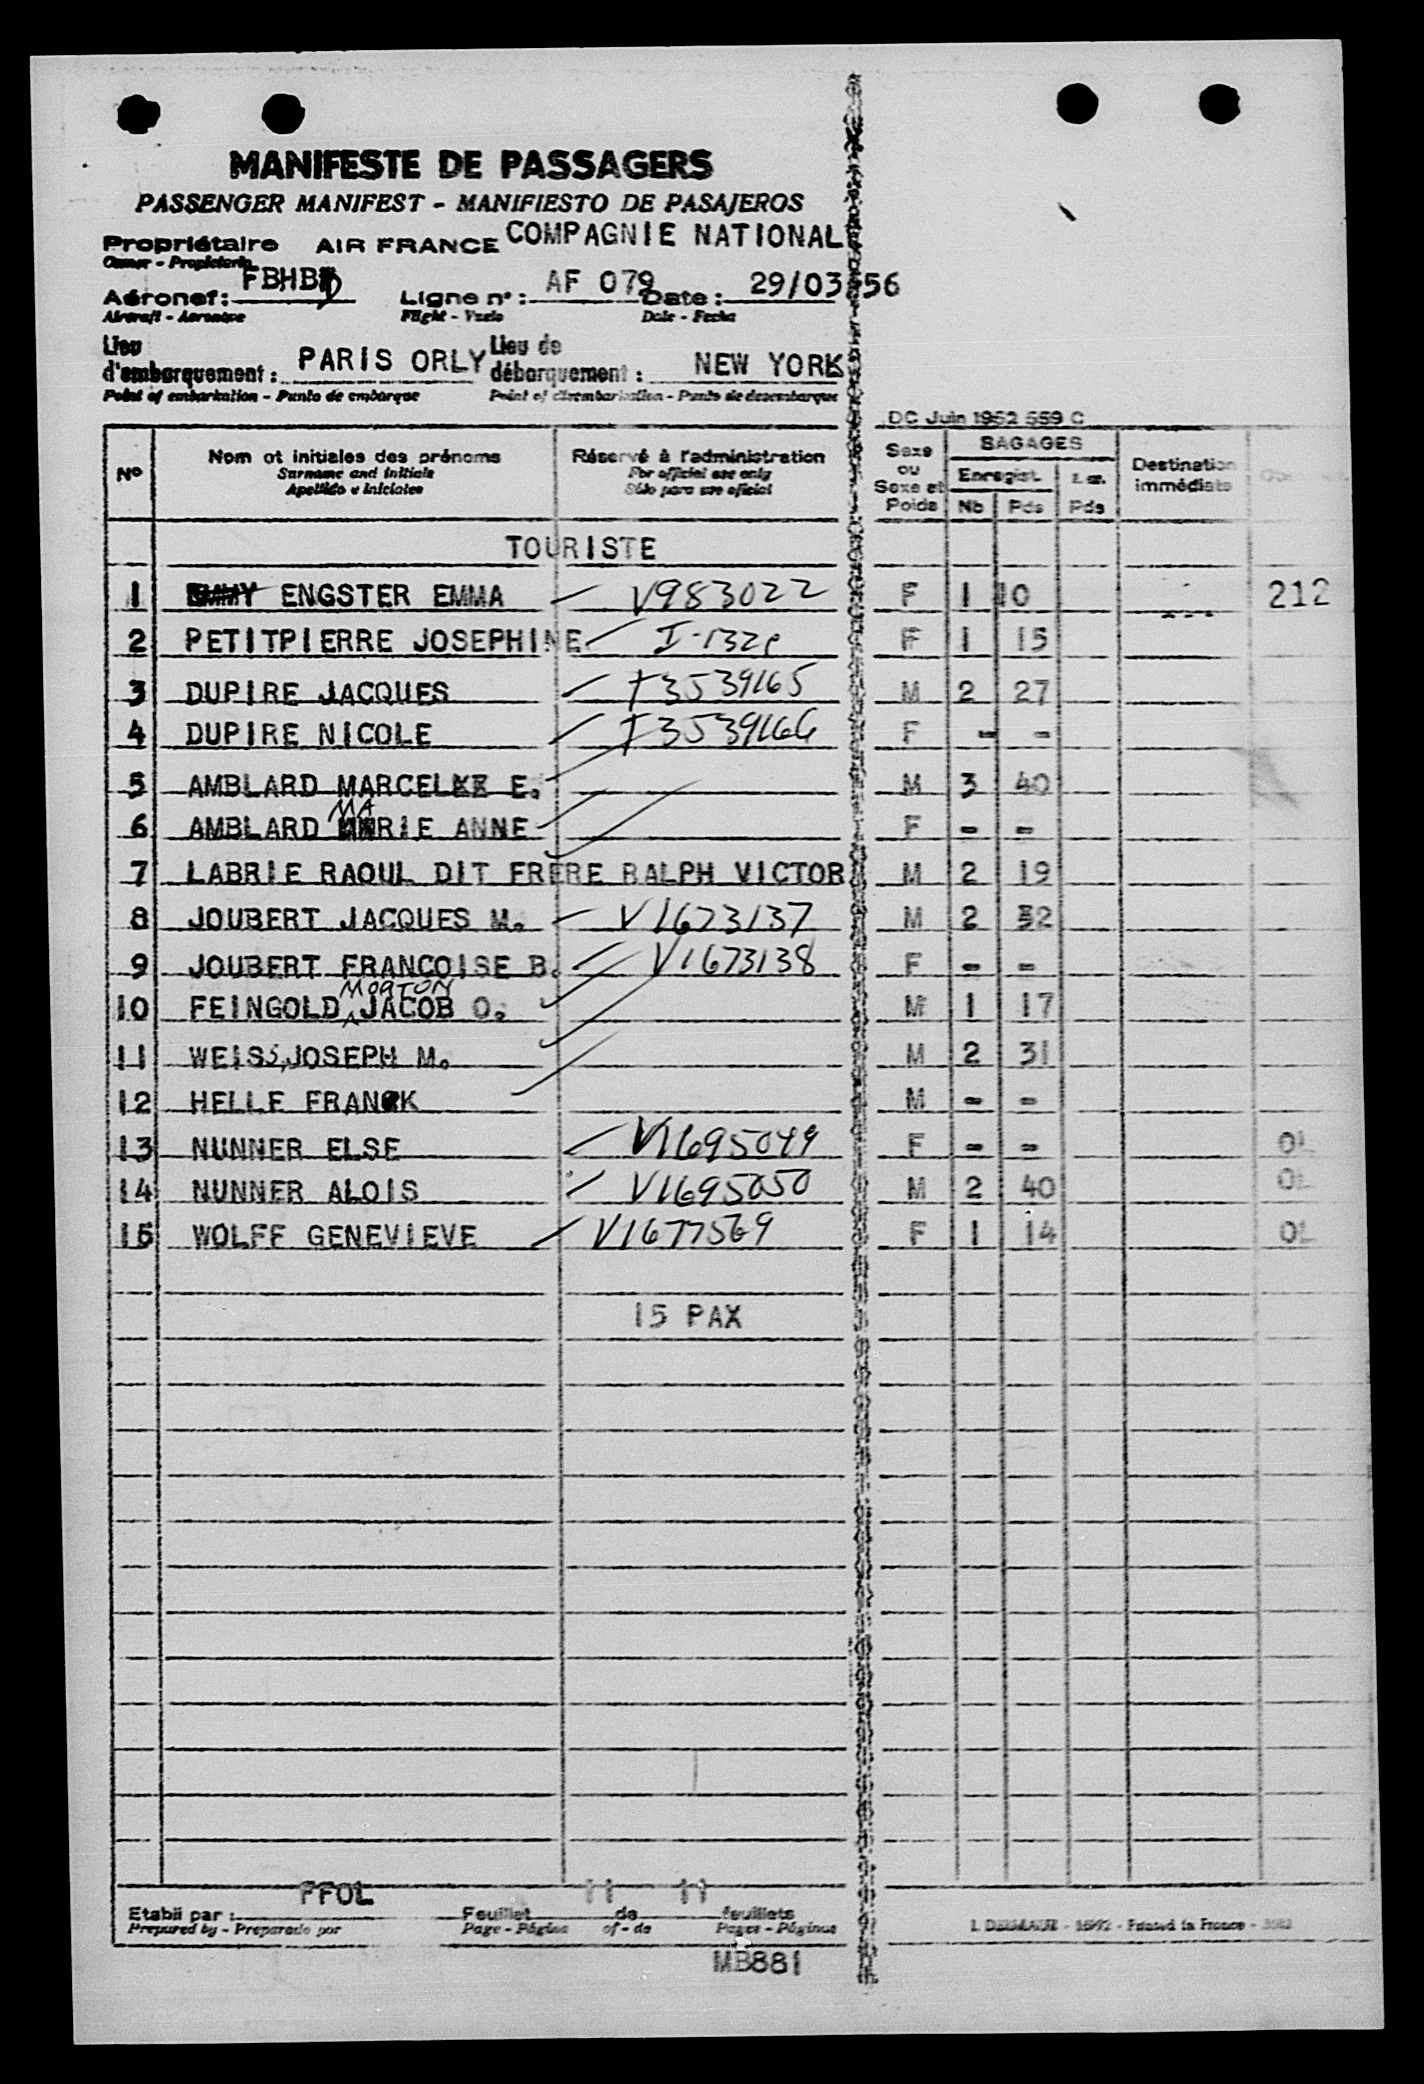 MANIFESTE DE PASSAGERS
PASSENGER MANIFEST - MANIFIESTO DE PASAJEROS
Propriétaire AIR FRANCE COMPAGNIE NATIONAL
Owner - Propietario
Aéronef: FBHB Ligne n°: AF 079 Date: 29/03 56
Aircraft - Aeronave Flight - Vuelo Date - Fecha
Lieu d'embarquement: PARIS ORLY Lieu de débarquement: NEW YORK
Point of embarkation - Punto de embarque Point of disembarkation - Punto de desembarque
DC Juin 1952 559 C
N° Nom et initiales des prénoms Réservé à l'administration Sexe ou Sexe et Poids BAGAGES Destination immédiate
Surname and initials For official use only Enregist.
Apellido e iniciales Sólo para uso oficial Nb Pds Pds
TOURISTE
1 ENGSTER EMMA V983022 F 1 10 212
2 PETITPIERRE JOSEPHINE F 1 15
3 DUPIRE JACQUES 3539165 M 2 27
4 DUPIRE NICOLE 3539166 F - -
5 AMBLARD MARCEL E. M 3 40
6 AMBLARD MARIE ANNE F - -
7 LABRIE RAOUL DIT FRERE RALPH VICTOR M 2 19
8 JOUBERT JACQUES M. V1673137 M 2 32
9 JOUBERT FRANCOISE B. V1673138 F - -
MORTON
10 FEINGOLD JACOB O. M 1 17
11 WEISS, JOSEPH M. M 2 31
12 HELLE FRANCK M - -
13 NUNNER ELSE V1695049 F - - OL
14 NUNNER ALOIS V1695050 M 2 40 OL
15 WOLFF GENEVIEVE V1677569 F 1 14 OL
15 PAX
Etabli par: FFOL Feuillet 11 de 11 feuillets
Prepared by - Preparado por Page - Página of - de Pages - Páginas
Printed in France
MB881